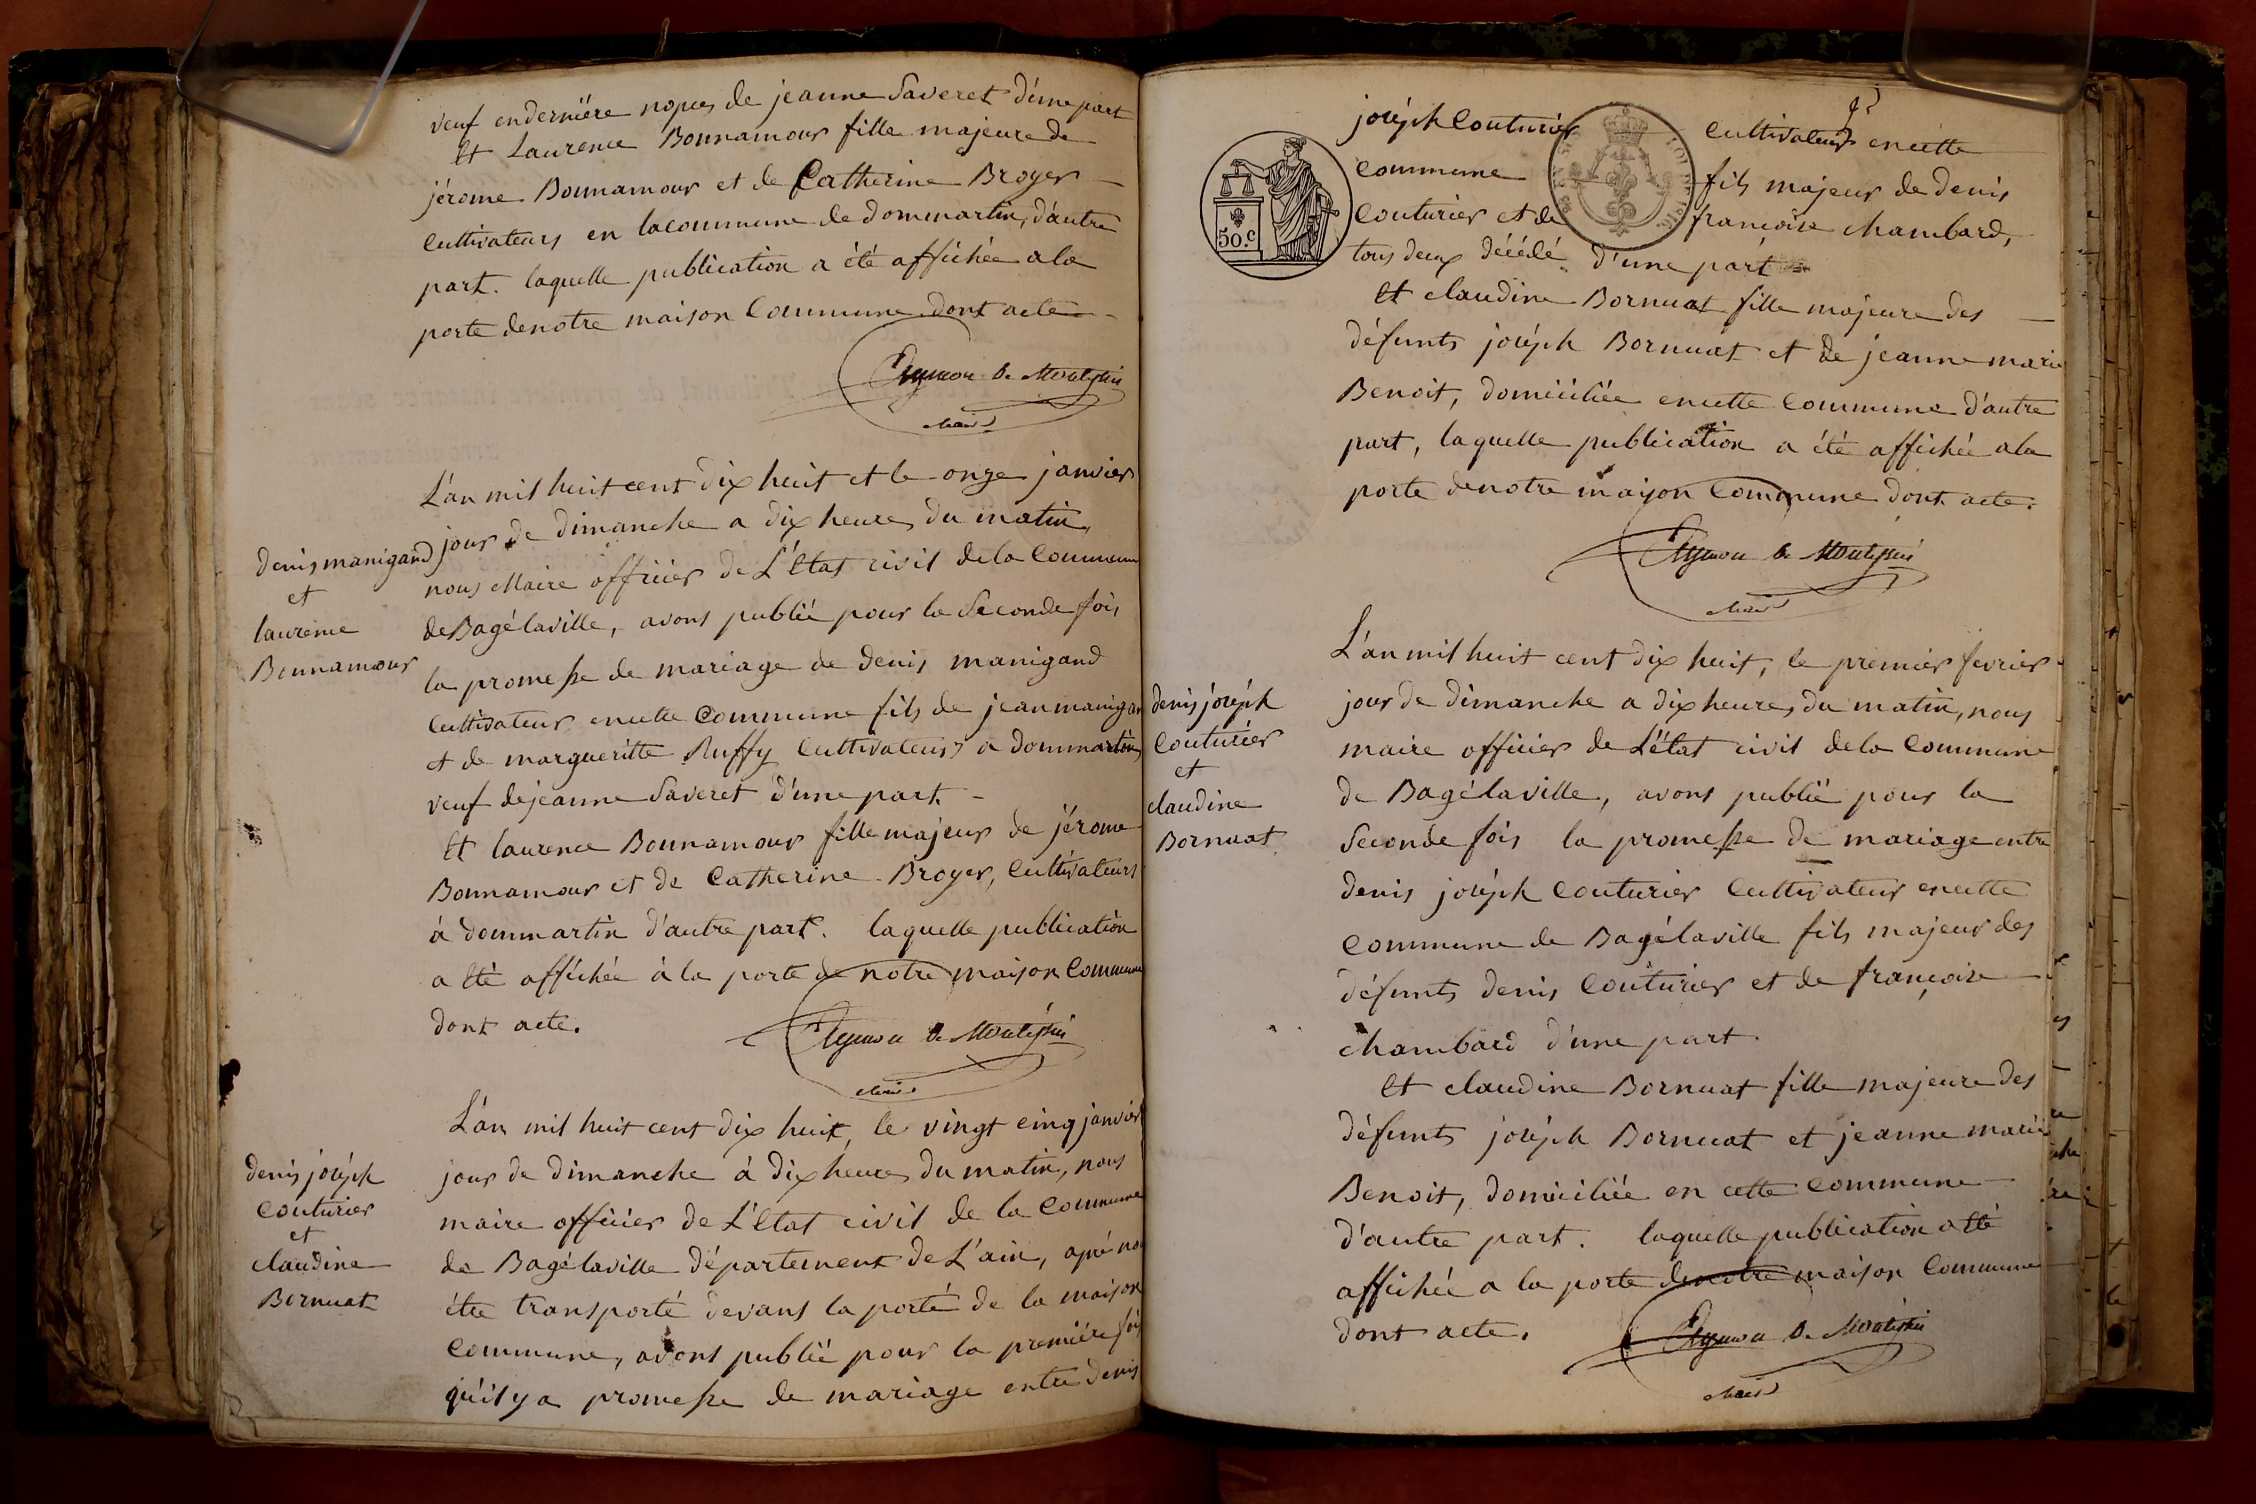 veuf en derniére nopces de jeanne Saveret d'une part
Et Laurence Bonnamour fille majeure de
jérome Bonnamour et de Catherine Broyer
cultivateurs en la commune de dommartin, d'autre
part. laquelle publication a été affichée a la
porte de notre maison Commune dont acte
maire
L'an mil huit cent dix huit et le onze janvier
jour de dimanche a dix heures du matin,
nous Maire officier de L'Etat civil de la Commune
de Bagélaville, avons publié pour la Seconde fois
la promesse de mariage de denis manigand
cultivateur en cette Commune fils de jean manigan
et de margueritte Ruffy cultivateurs a dommartin
veuf de jeanne Saveret d'une part.
Et laurence Bonnamour fille majeur de jérome
Bonnamour et de Catherine Broyer, cultivateurs
à dommartin d'autre part. laquelle publication
a été affichée à la porte de notre maison Commune
dont acte.
maire
denis manigand
et
laurence
Bonnamour
L'an mil huit cent dix huit, le vingt cinq janvier
jour de dimanche à dix heures du matin, nous
maire officier de L'Etat civil de la Commune
de Bagélaville département de L'ain, apré no
étre transporté devans la porté de la maison
Commune, avons publié pour la premiére fois
qu'il y a promesse de mariage entre denis
denis joséph
Couturier
et
claudine
Bornuat
joséph Couturier cultivateur en cette
Commune fils majeur de denis
Couturier et de françoise chambard,
tous deux décédé d'une part
50.c
Et claudine Bornuat fille majeure des
défunts joséph Bornuat et de jeanne marie
Benoit, domiciliée en cette Commune d'autre
part, laquelle publication a été affichée a la
porte de notre maison Commune dont acte.
maire
L'an mil huit cent dix huit, le premier fevrier
jour de dimanche a dix heures du matin, nous
maire officier de L'état civil de la Commune
de Bagélaville, avons publié pour la
Seconde fois la promesse de mariage entre
denis joséph Couturier cultivateur en cette
Commune de Bagélaville fils majeur des
défunts denis Couturier et de françoise
chambard d'une part.
Et claudine Bornuat fille majeure des
défunts joséph Bornuat et jeanne marie
Benoit, domiciliée en cette Commune
d'autre part. laquelle publication a été
affichée a la porte de notre maison Commune
dont acte.
maire
denis joséph
Couturier
et
claudine
Bornuat